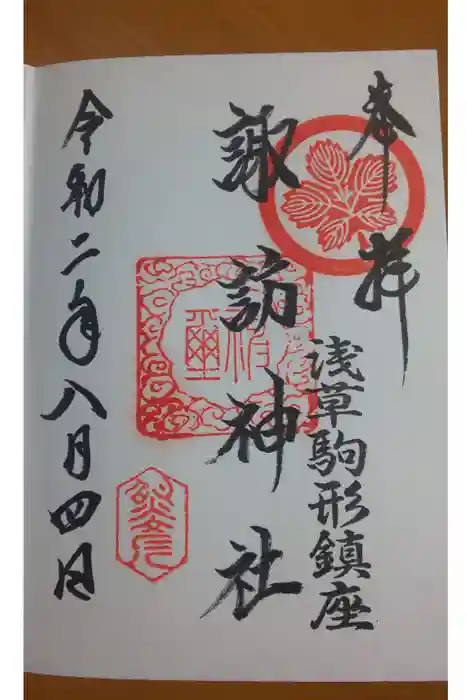 奉拝
浅草駒形鎮座
諏訪神社
令和二年八月四日